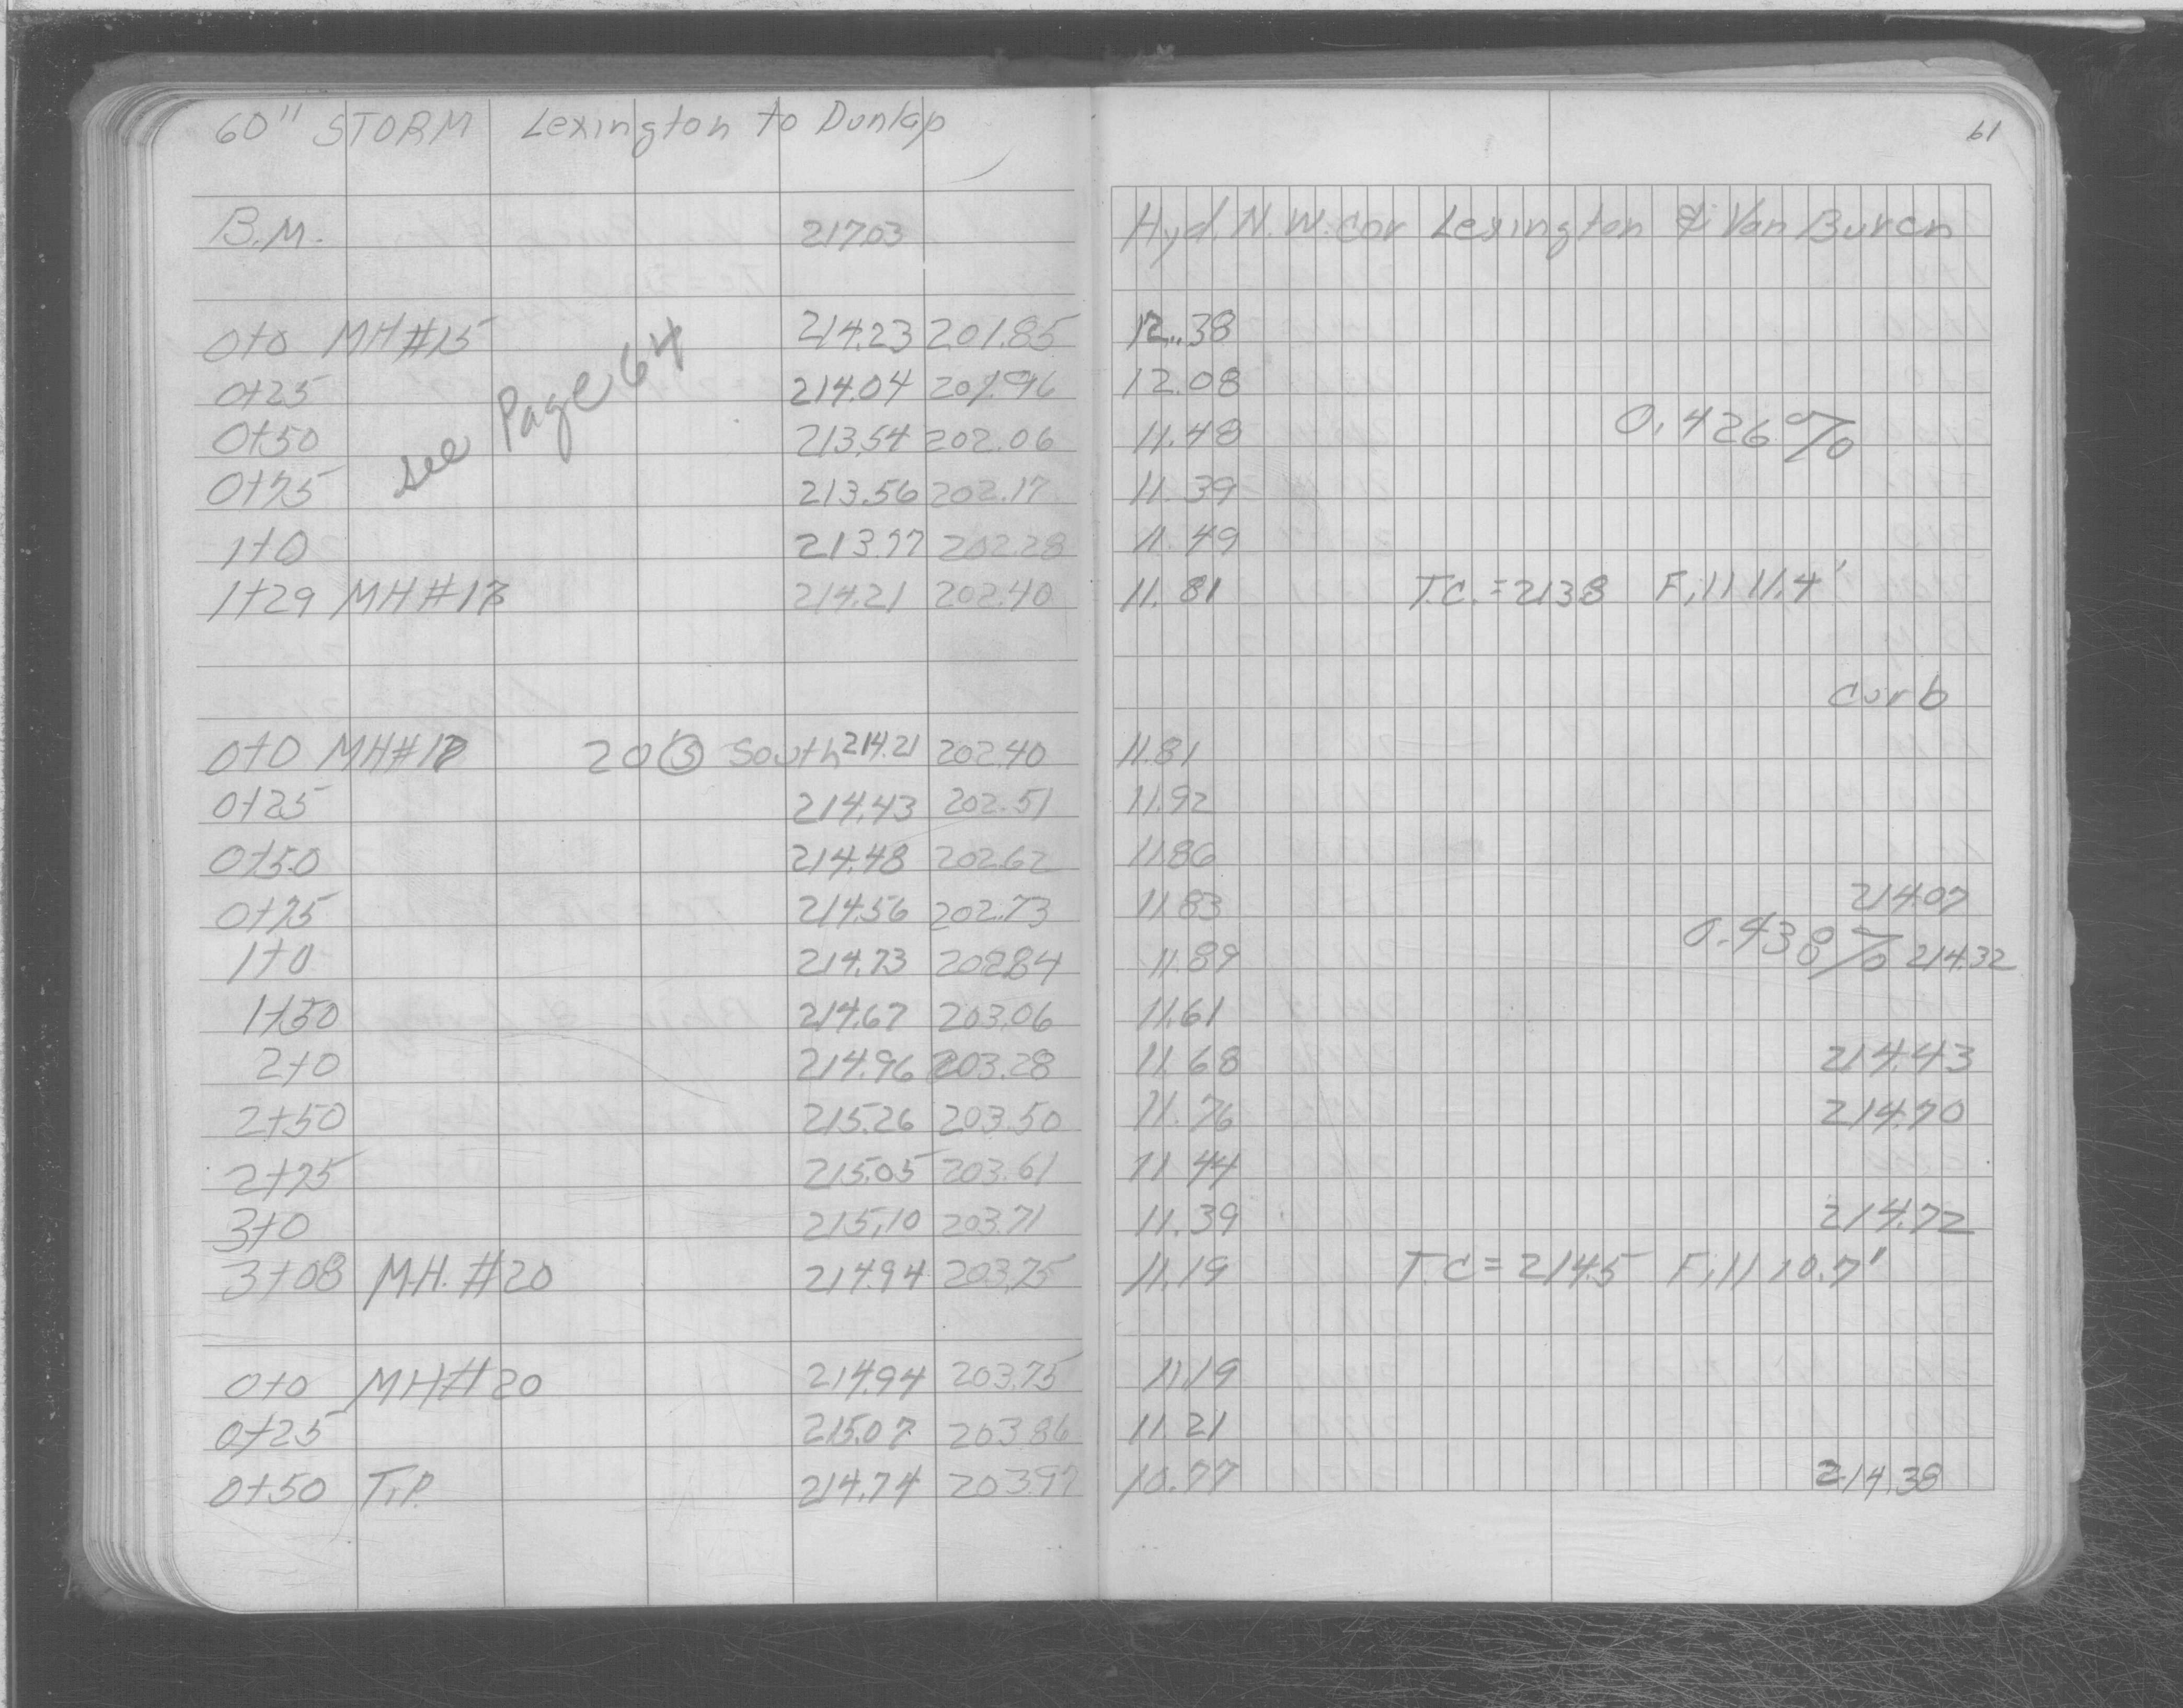 60" STORM Lexington to Dunlap
61
B.M. 217.03 Hyd. N.W. cor Lexington & Van Buren
0+0 MH#15 214.23 201.85 12.38
0+25 214.04 201.96 12.08
see Page 64
0+50 213.54 202.06 11.48 0.426%
0+75 213.56 202.17 11.39
1+0 213.77 202.28 11.49
1+29 MH#18 214.21 202.40 11.81 T.C.=2138 Fill 11.4'
curb
0+0 MH#18 20 South 214.21 202.40 11.81
0+25 214.43 202.51 11.92
0+50 214.48 202.62 11.86
0+75 214.56 202.73 11.83 214.07
1+0 214.73 202.84 11.89 0.438% 214.32
1+50 214.67 203.06 11.61
2+0 214.96 203.28 11.68 214.43
2+50 215.26 203.50 11.76 214.70
2+75 215.05 203.61 11.44
3+0 215.10 203.71 11.39 214.72
3+08 M.H. #20 214.94 203.75 11.19 T.C=214.5 Fill 10.7'
0+0 MH#20 214.94 203.75 11.19
0+25 215.07 203.86 11.21
0+50 T.P. 214.74 203.97 10.77 214.38